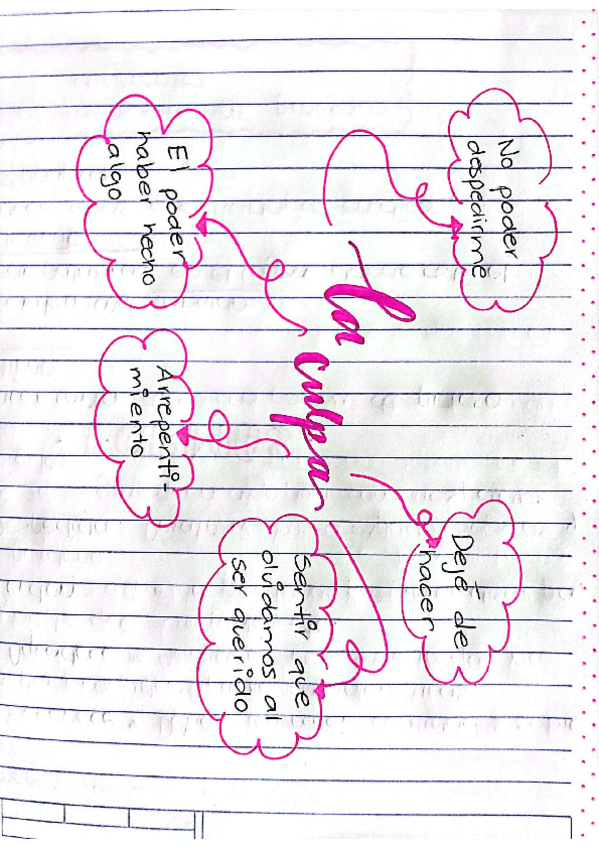 No poder
despedirme
Dejé de
hacer
La culpa
El poder
haber hecho
algo
Arrepenti-
miento
Sentir que
olvidamos al
ser querido